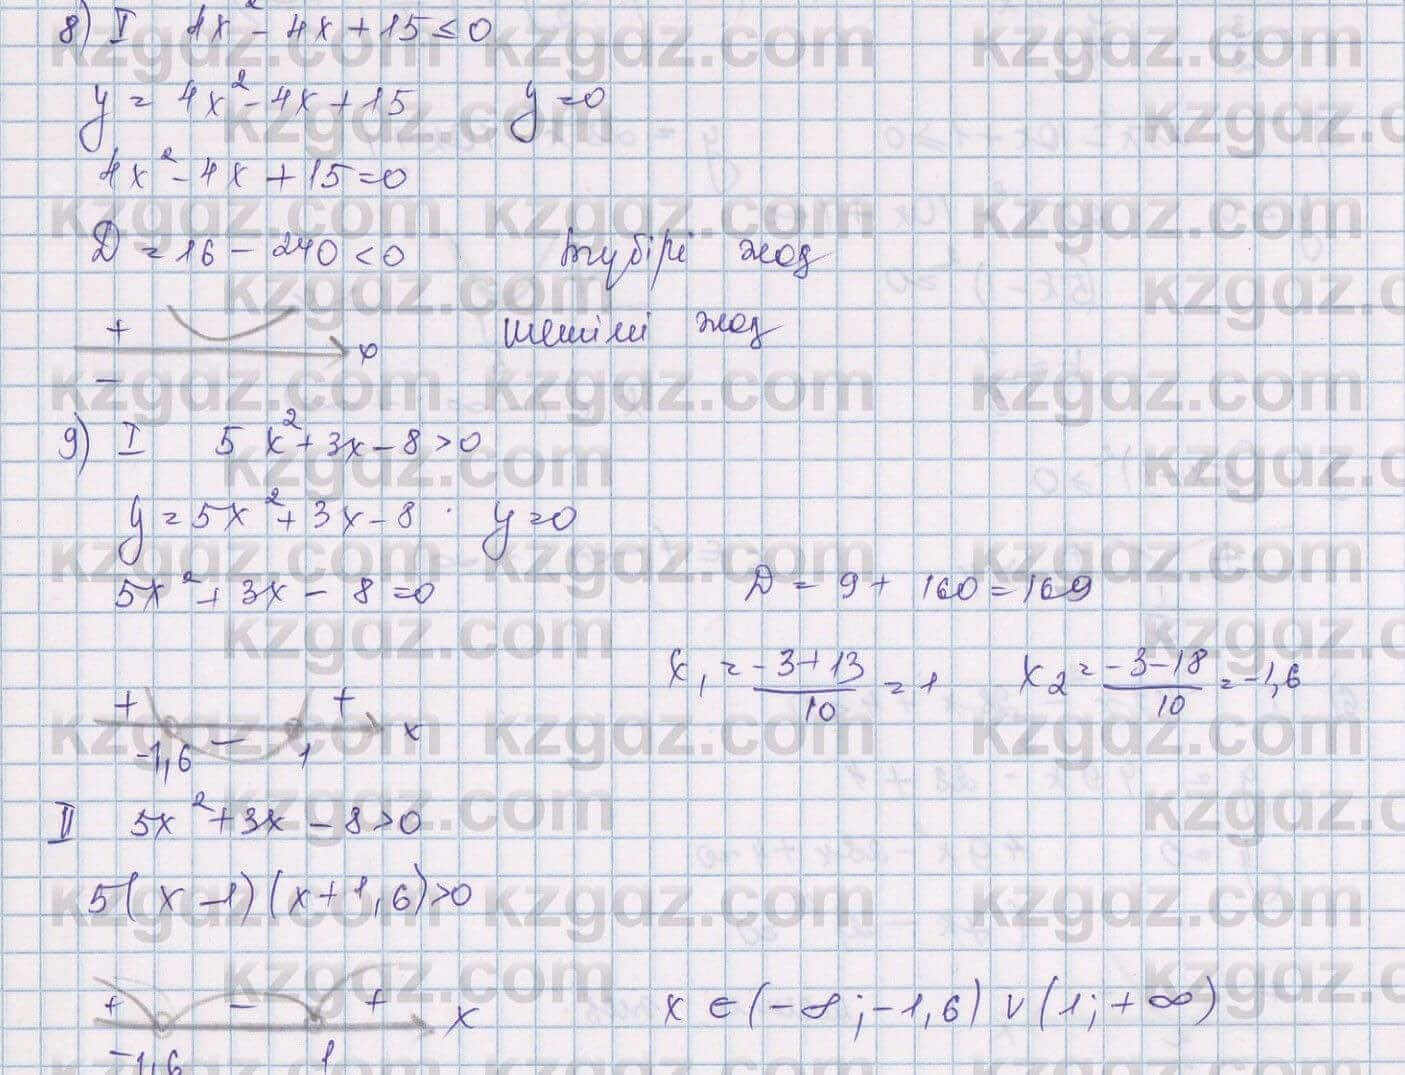 8) I 4x² - 4x + 15 ≤ 0
y = 4x² - 4x + 15 y = 0
4x² - 4x + 15 = 0
D = 16 - 240 < 0 түбірі жоқ
+ x шешімі жоқ
-
9) I 5x² + 3x - 8 > 0
y = 5x² + 3x - 8 y = 0
5x² + 3x - 8 = 0 D = 9 + 160 = 169
x₁ = (-3+13)/10 = 1 x₂ = (-3-18)/10 = -1,6
+ - + x
-1,6 1
II 5x² + 3x - 8 > 0
5(x - 1)(x + 1,6) > 0
+ - + x x ∈ (-∞; -1,6) ∨ (1; +∞)
-1,6 1
kzgdz.com